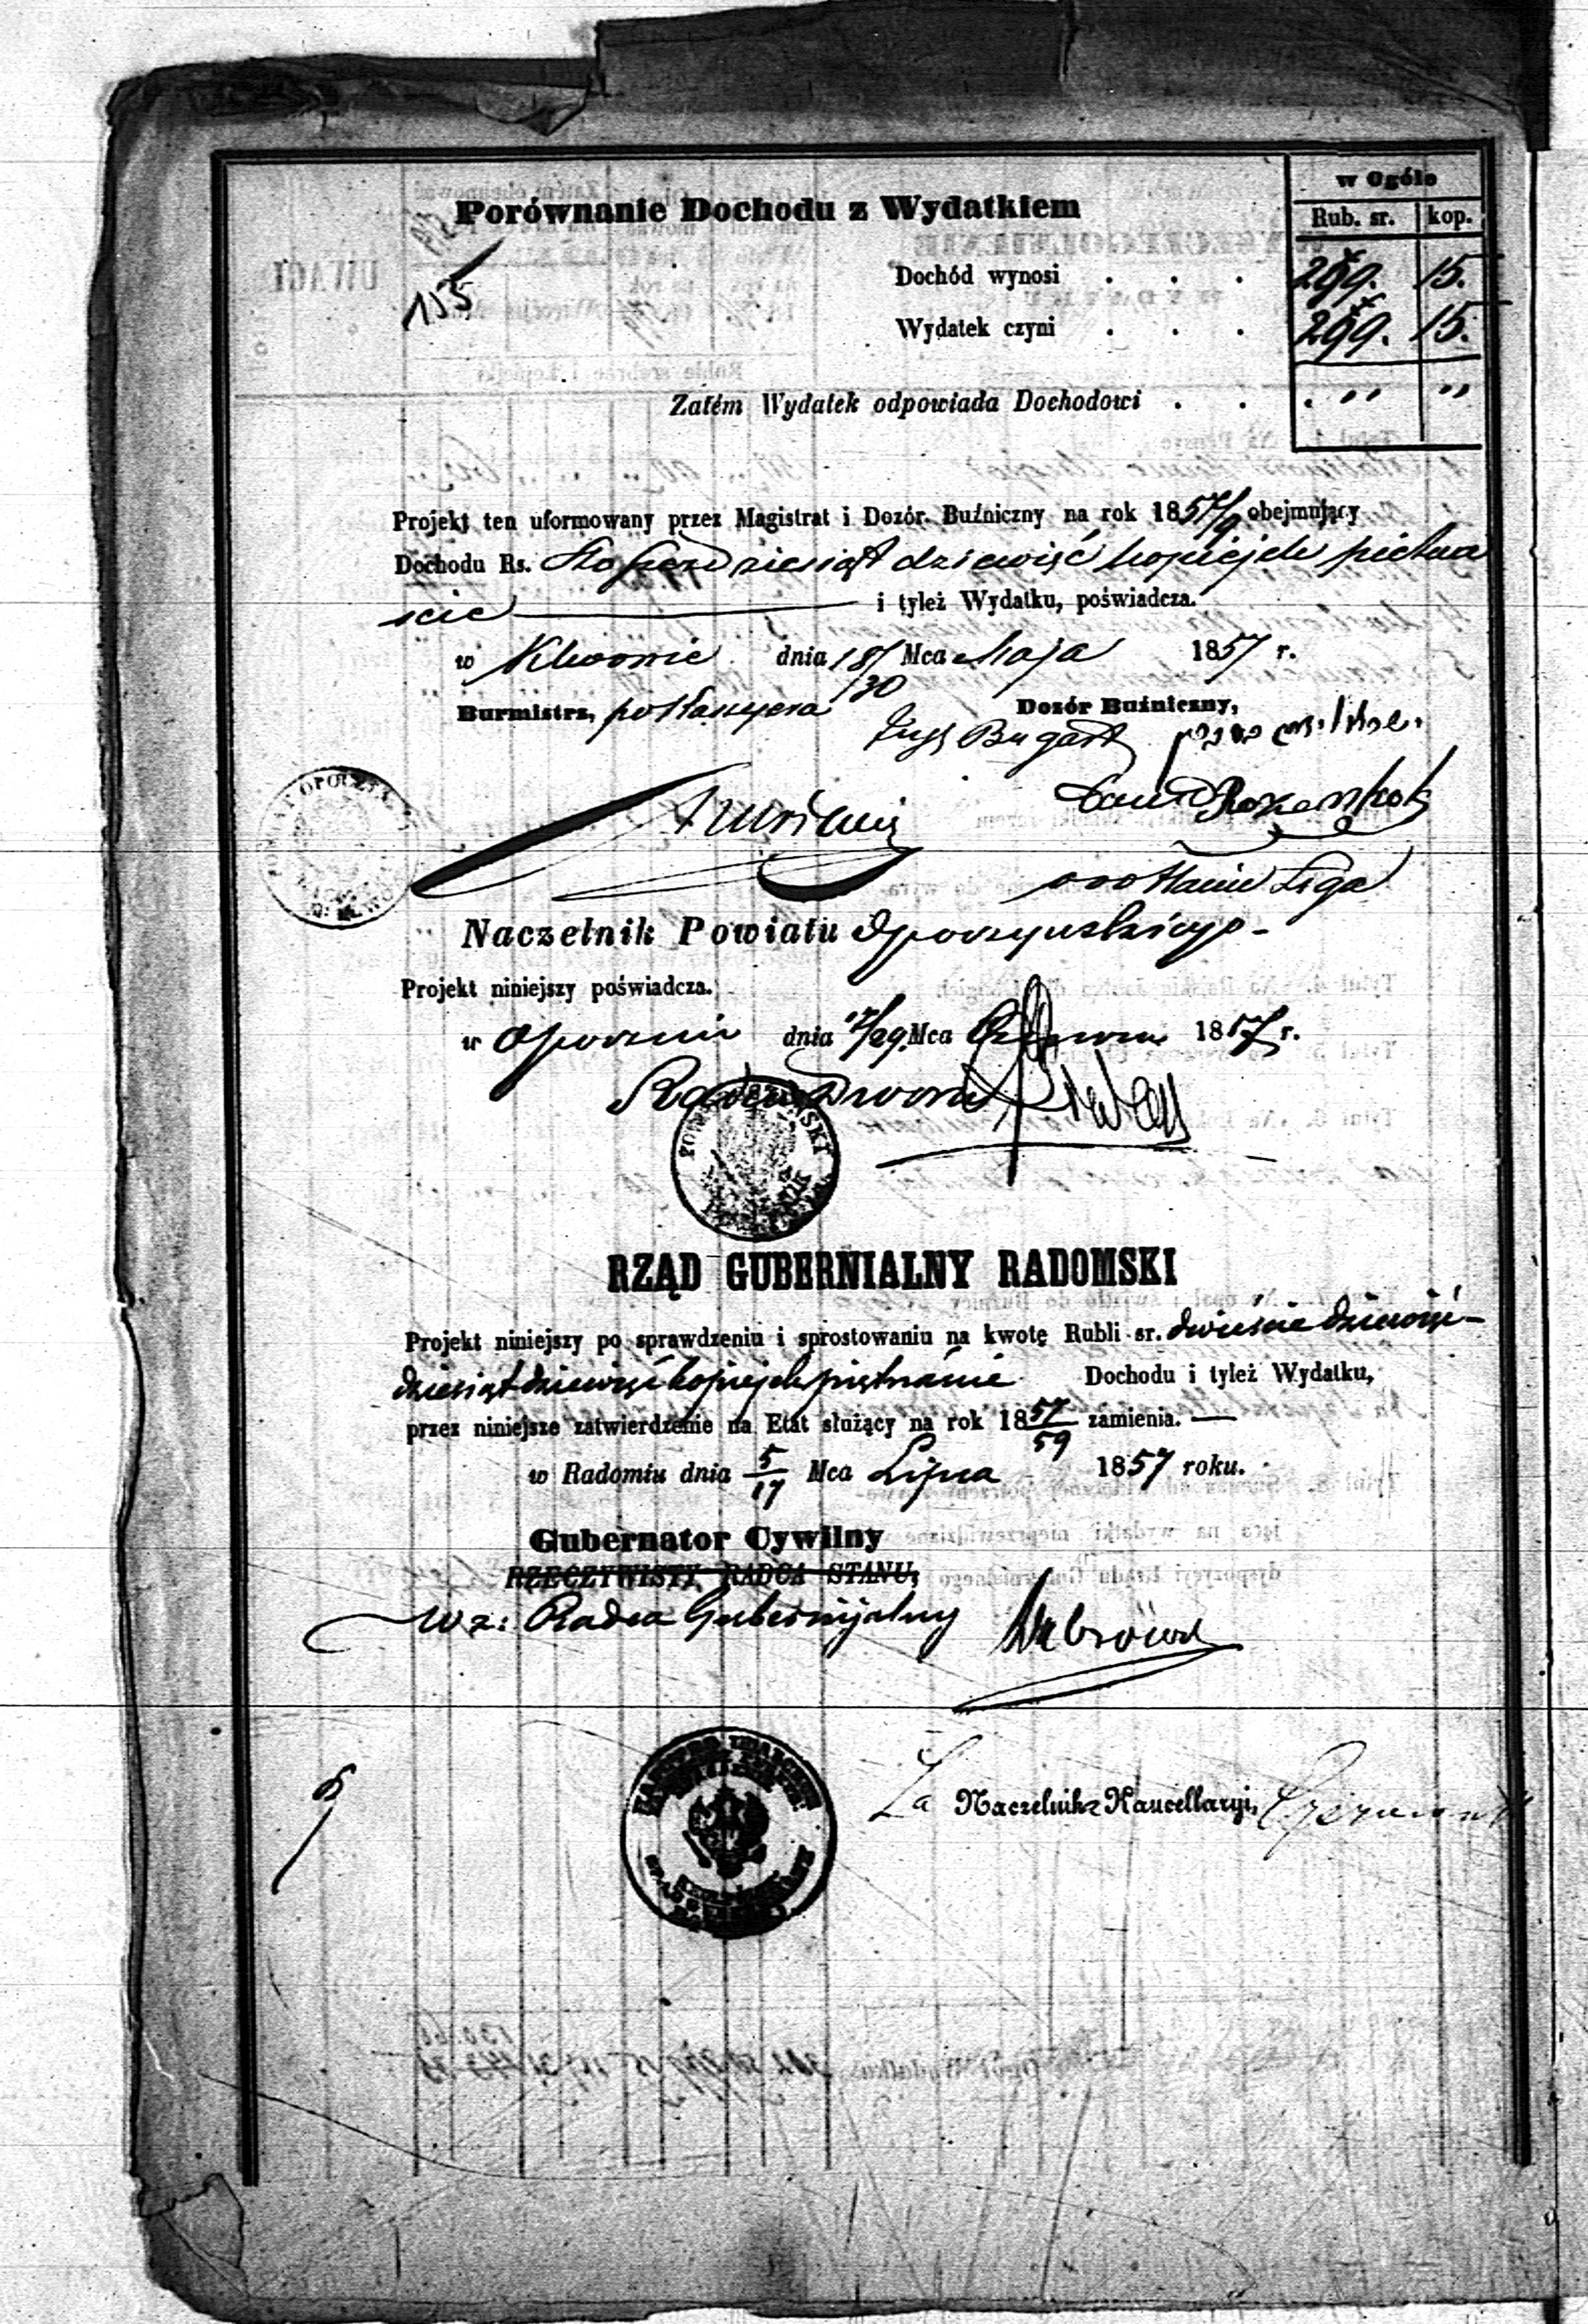 w Ogóle
Porównanie Dochodu z Wydatkiem
Rub. sr. kop.
155
Dochód wynosi . . . 299. 15.
Wydatek czyni . . . 299. 15.
Zatém Wydatek odpowiada Dochodowi . . . " "
Projekt ten uformowany przez Magistrat i Dozór Buźniczny na rok 1857/9 obejmujący
Dochodu Rs. Sto dziewięć kopiejek pietna
scie i tyleż Wydatku, poświadcza.
w Klwowie dnia 18/30 Mca Maja 1857 r.
Burmistrz, Dozór Buźniczny,
Bugart
Liga
Naczelnik Powiatu Opoczyńskiego
Projekt niniejszy poświadcza.
w Opocznie dnia 17/29 Mca Czerwca 1857 r.
Radca Dworu
RZĄD GUBERNIALNY RADOMSKI
Projekt niniejszy po sprawdzeniu i sprostowaniu na kwotę Rubli sr. dwieście dziewięć-
dziesiąt dziewięć kopiejek piętnaście Dochodu i tyleż Wydatku,
przez niniejsze zatwierdzenie na Etat służący na rok 1857/59 zamienia. —
w Radomiu dnia 5/17 Mca Lipca 1857 roku.
Gubernator Cywilny
RZECZYWISTY RADCA STANU,
wz: Radca Gubernijalny
Za Naczelnika Kancellaryi,